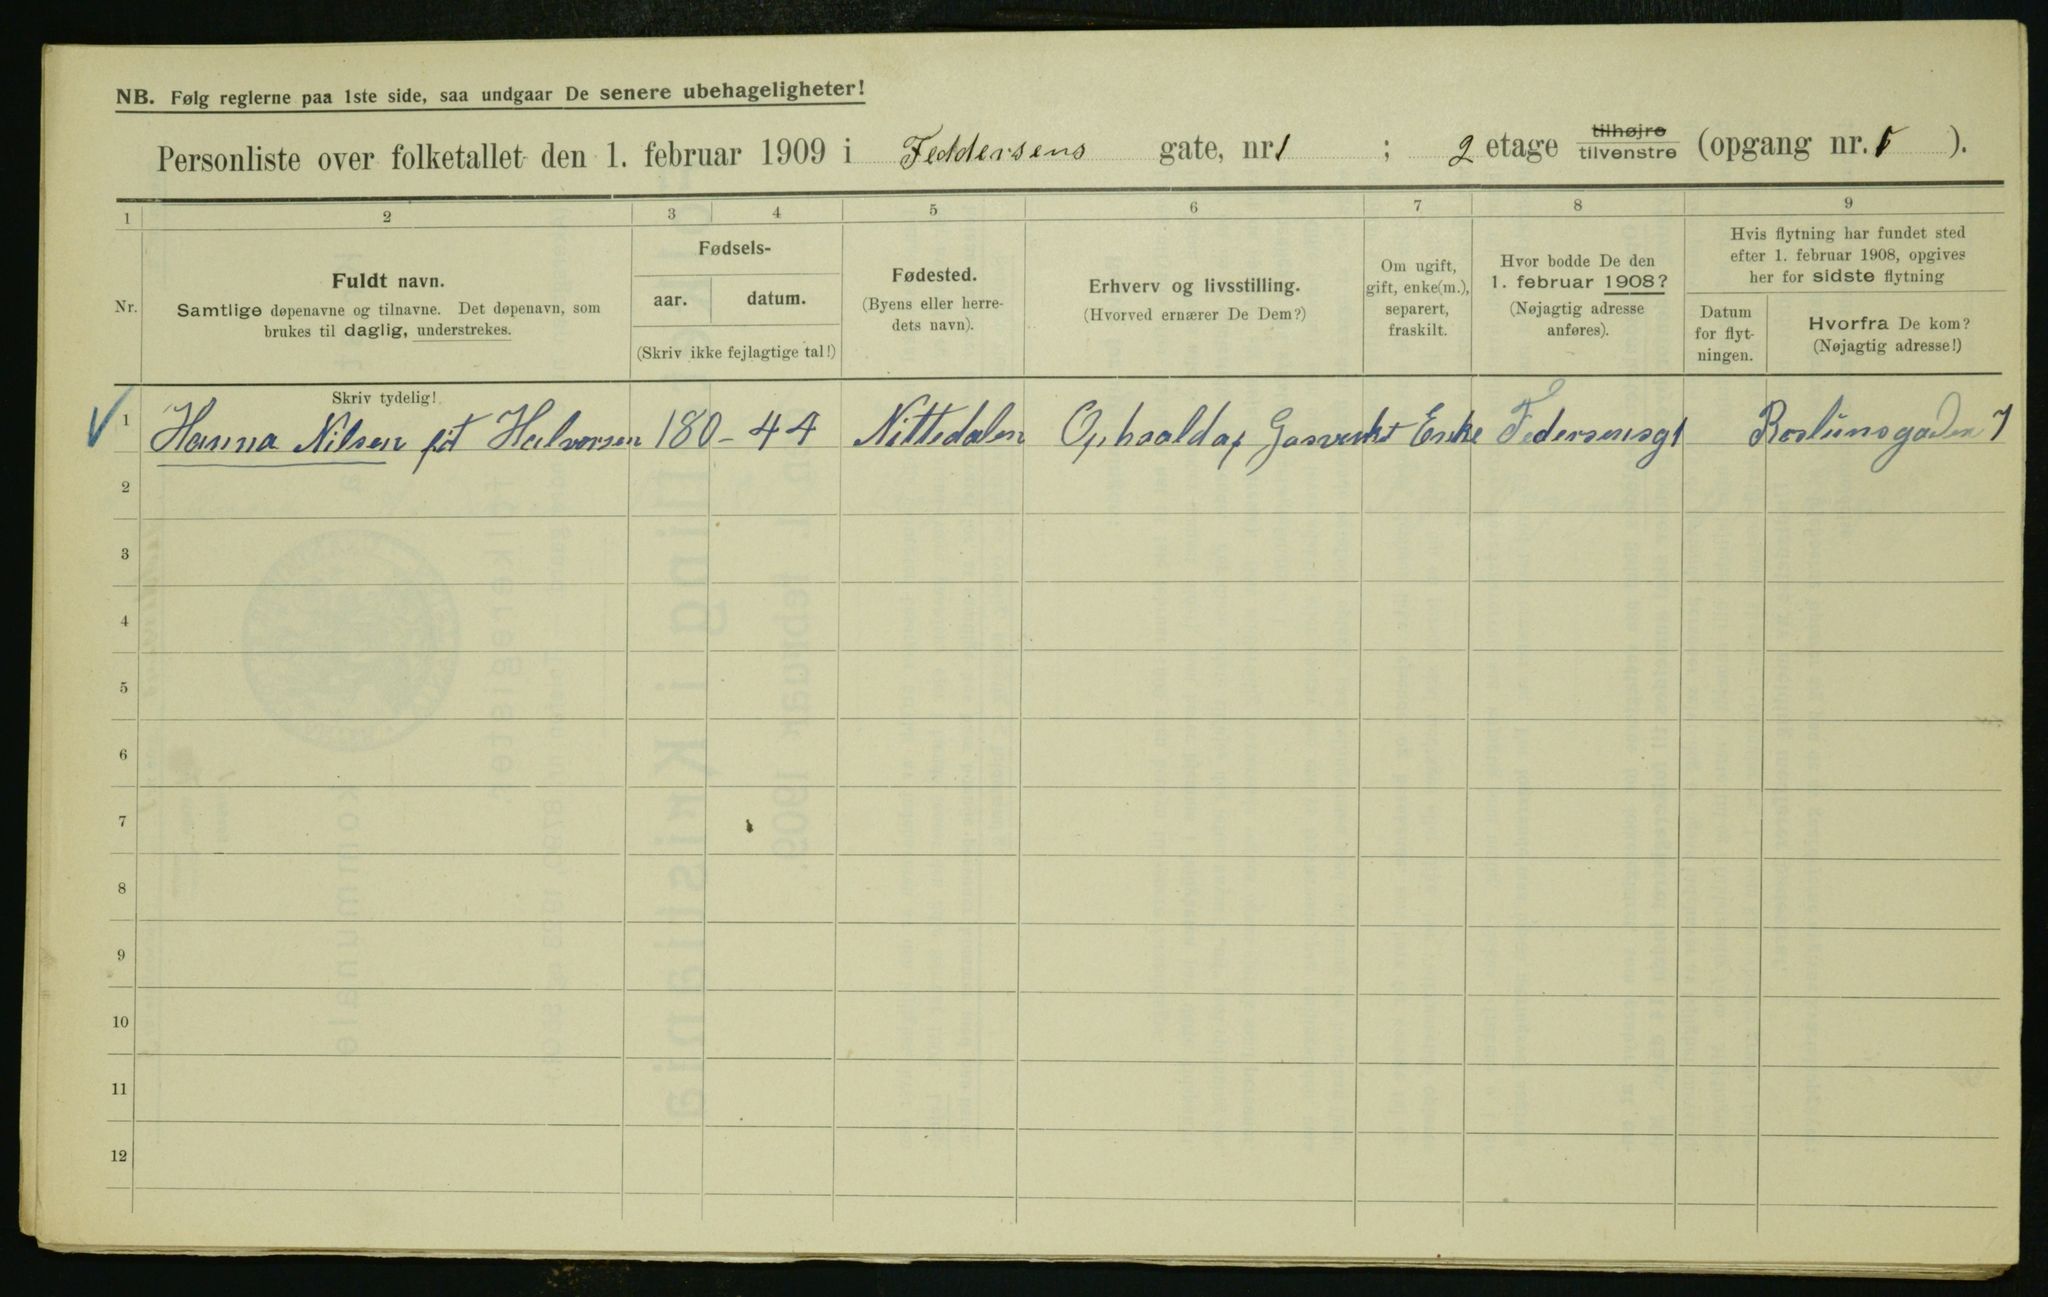 NB. Følg reglerne paa 1ste side, saa undgaar De senere ubehageligheter!
Personliste over folketallet den 1. februar 1909 i Feddersens gate, nr. 1 ; 2 etage tilhøjre tilvenstre (opgang nr. 1 ).
1 2 3 4 5 6 7 8 9
Nr.
Fuldt navn.
Samtlige døpenavne og tilnavne. Det døpenavn, som
brukes til daglig, understrekes.
Fødsels-
aar. datum.
(Skriv ikke fejlagtige tal!)
Fødested.
(Byens eller herre-
dets navn).
Erhverv og livsstilling.
(Hvorved ernærer De Dem?)
Om ugift,
gift, enke(m.),
separert,
fraskilt.
Hvor bodde De den
1. februar 1908?
(Nøjagtig adresse
anføres).
Hvis flytning har fundet sted
efter 1. februar 1908, opgives
her for sidste flytning
Datum
for flyt-
ningen.
Hvorfra De kom?
(Nøjagtig adresse!)
Skriv tydelig!
1 Hanna Nilsen föt Halvorsen 180-44 Nittedalen Ophaald af Gasverket Enke Federsensgt Roslunsgaden 7
2
3
4
5
6
7
8
9
10
11
12